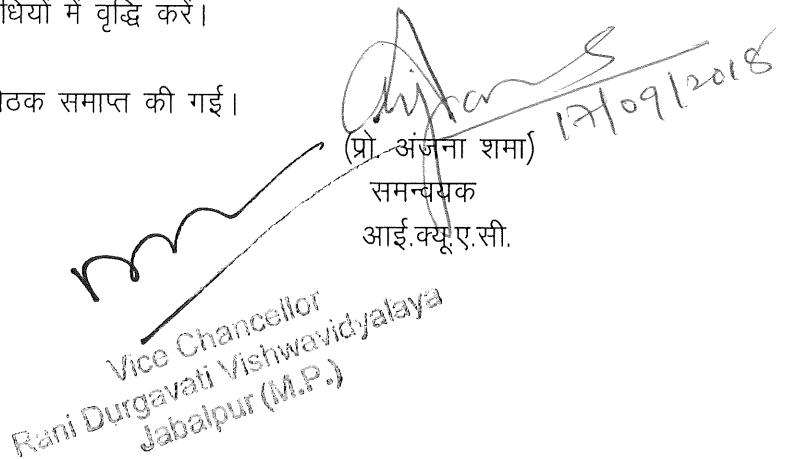 धियों में वृद्धि करें।
ठक समाप्त की गई।
17/09/2018
(प्रो. अंजना शर्मा)
समन्वयक
आई.क्यू.ए.सी.
Vice Chancellor
Rani Durgavati Vishwavidyalaya
Jabalpur (M.P.)